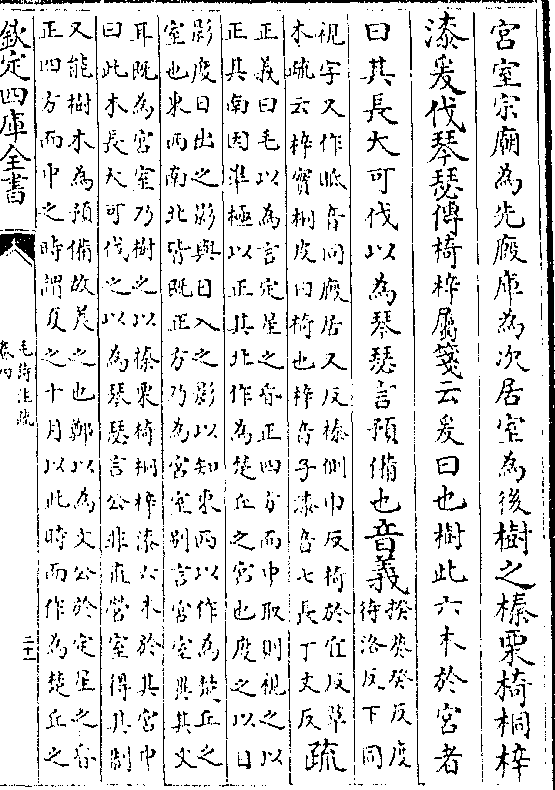 宮室宗廟為先廄庫為次居室為後樹之榛栗椅桐梓
漆爰伐琴瑟傳椅梓屬箋云爰曰也樹此六木於宮者
曰其長大可伐以為琴瑟言預備也音義
揆葵癸反度
待洛反下同
視字又作眡音同廄居又反榛側巾反椅於宜反草
木疏云梓實桐皮曰椅也梓音子漆音七長丁丈反
疏
正義曰毛以為言定星之昏正四方而中取則視之以
正其南因準極以正其北作為楚丘之宮也度之以日
影度日出之影與日入之影以知東西以作為楚丘之
室也東西南北皆既正方乃為宮室別言宮室異其文
耳既為宮室乃樹之以榛栗椅桐梓漆六木於其宮中
曰此木長大可伐之以為琴瑟言公非直營室得其制
又能樹木為預備故美之也鄭以為文公於定星之昏
正四方而中之時謂夏之十月以此時而作為楚丘之
欽定四庫全書
毛詩注疏
卷四
二十一